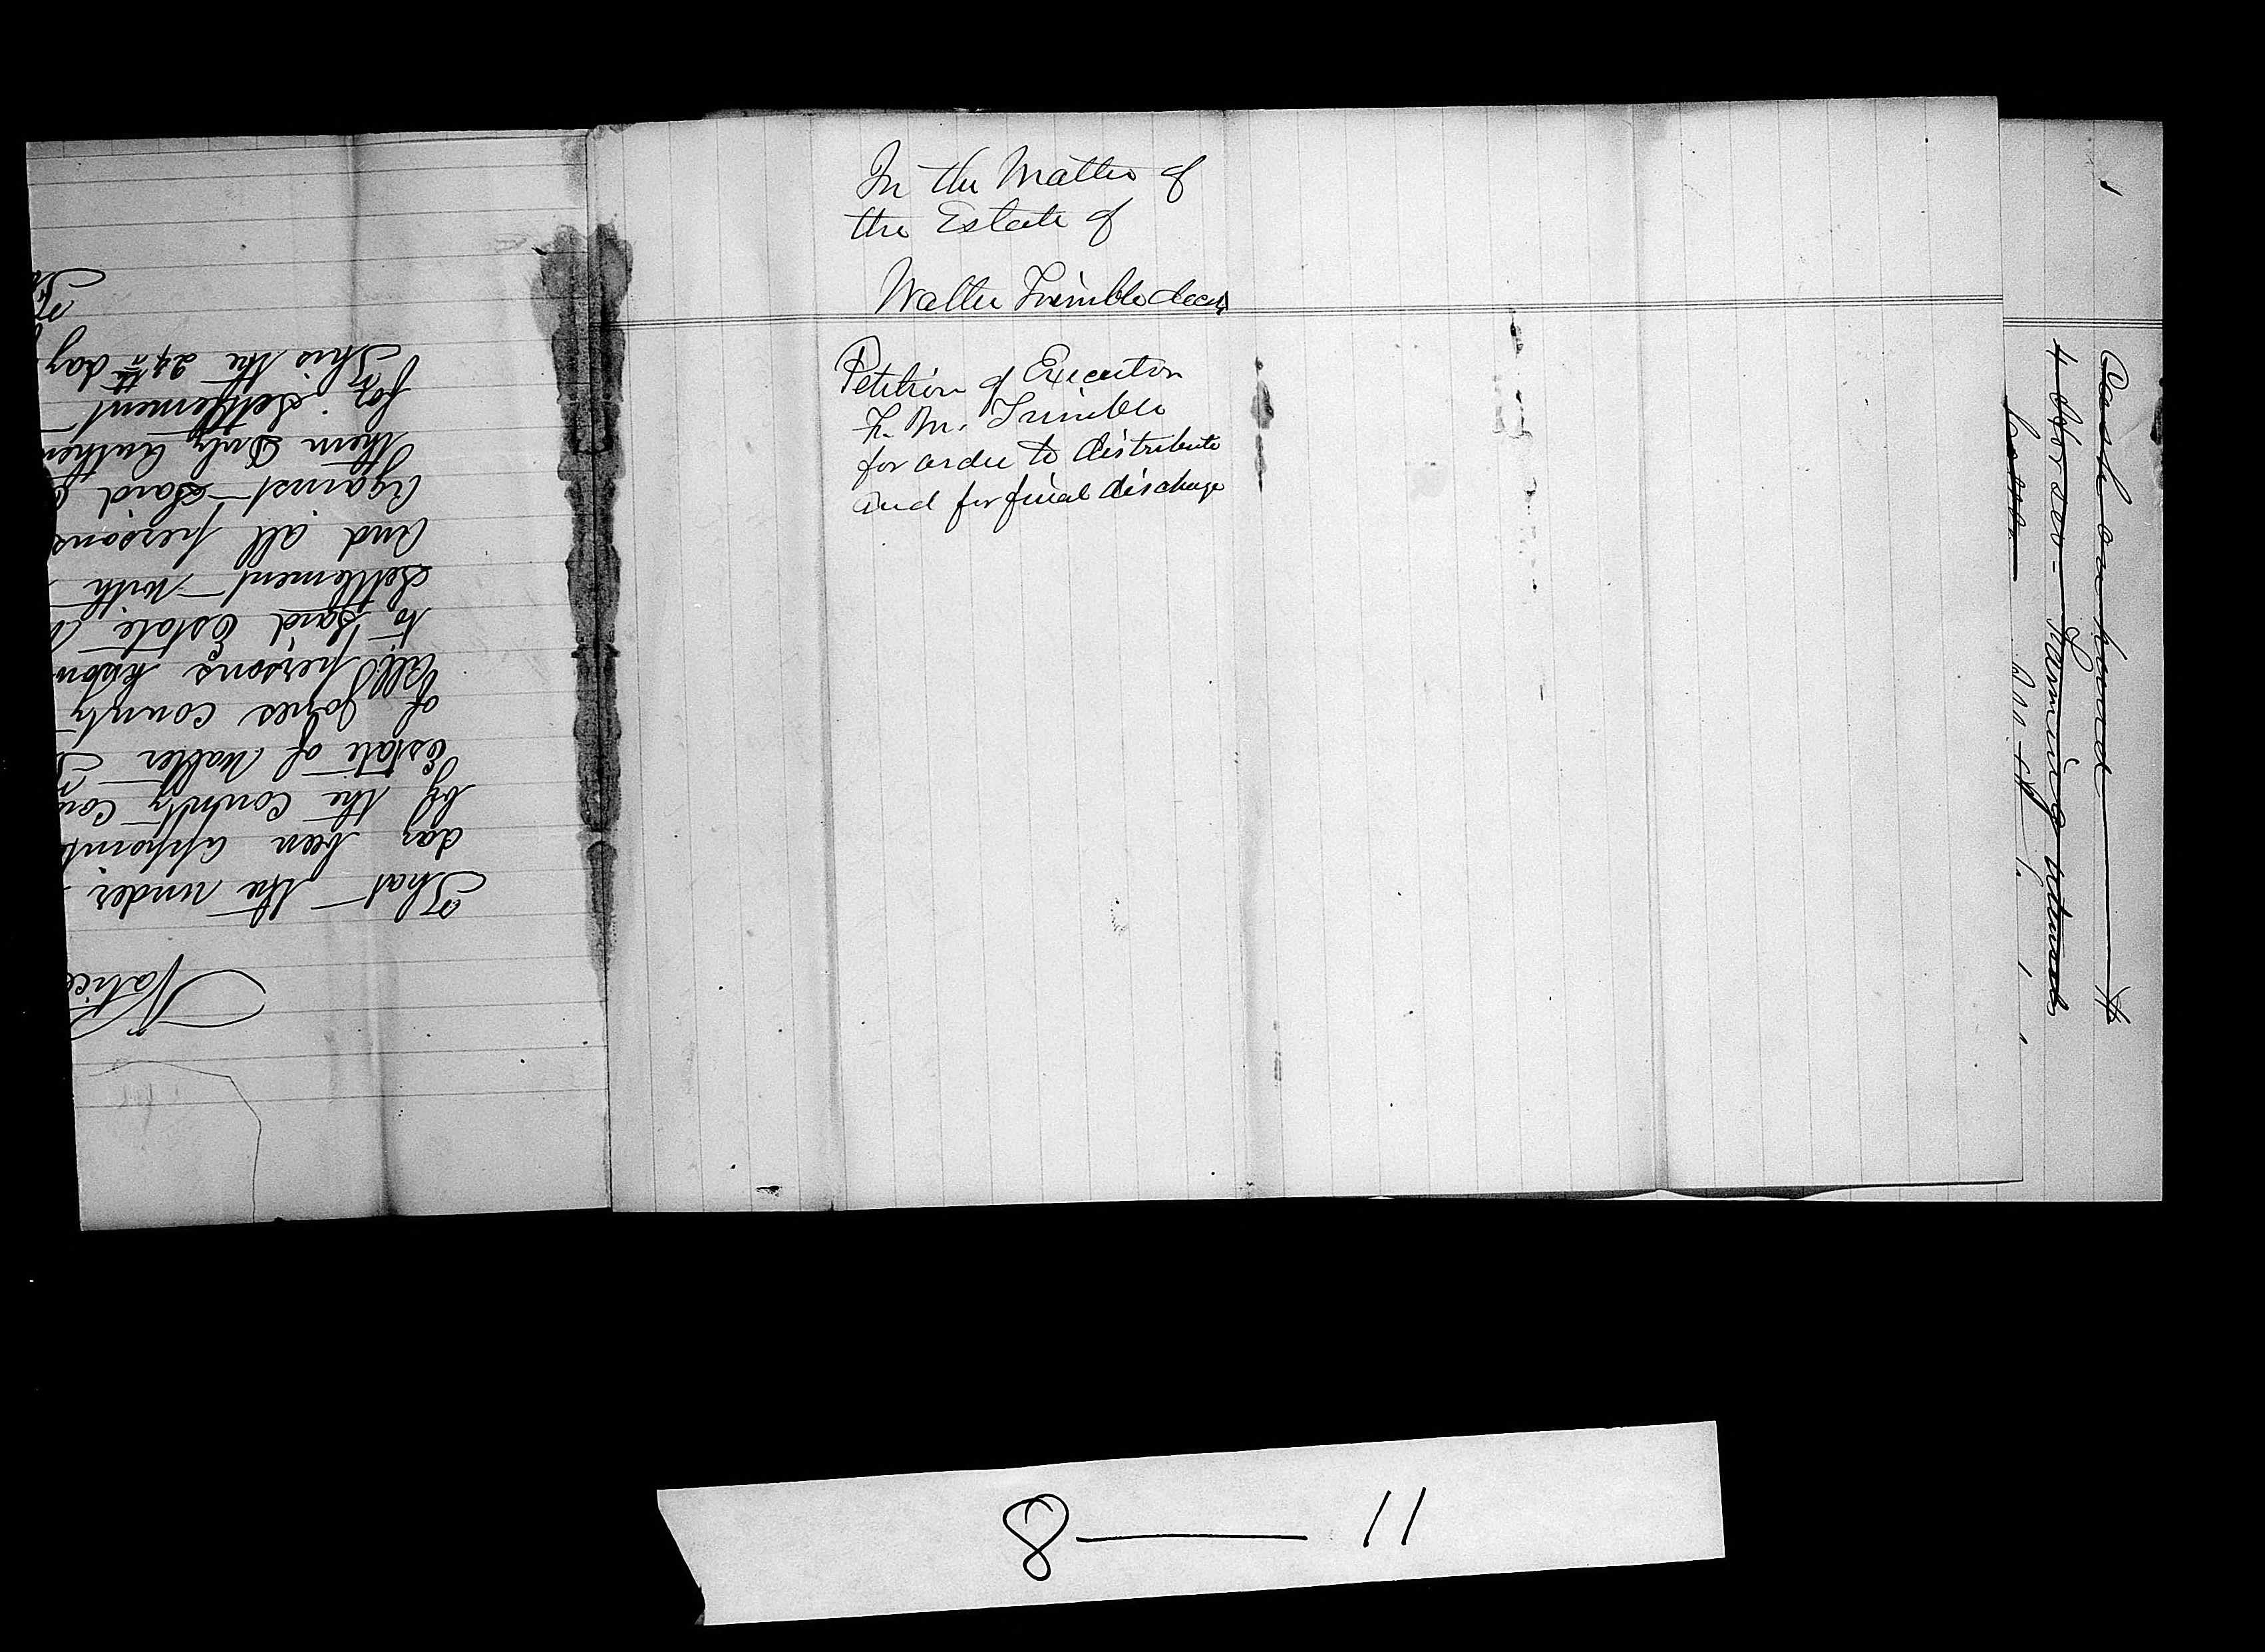 In the Matter of
the Estate of
Walter Trimble decd
Petition of Executor
F. M. Trimble
for order to distribute
and for final discharge
Notice
That the under
day been appoint
by the County Cou
Estate of Walter T
of Jones County
All persons know
to said Estate
Settlement with
And all persons
Against said
them Duly Authen
for Settlement
This the 24th day
Cash on hand
4 Horses - Farming utensils
8 — 11